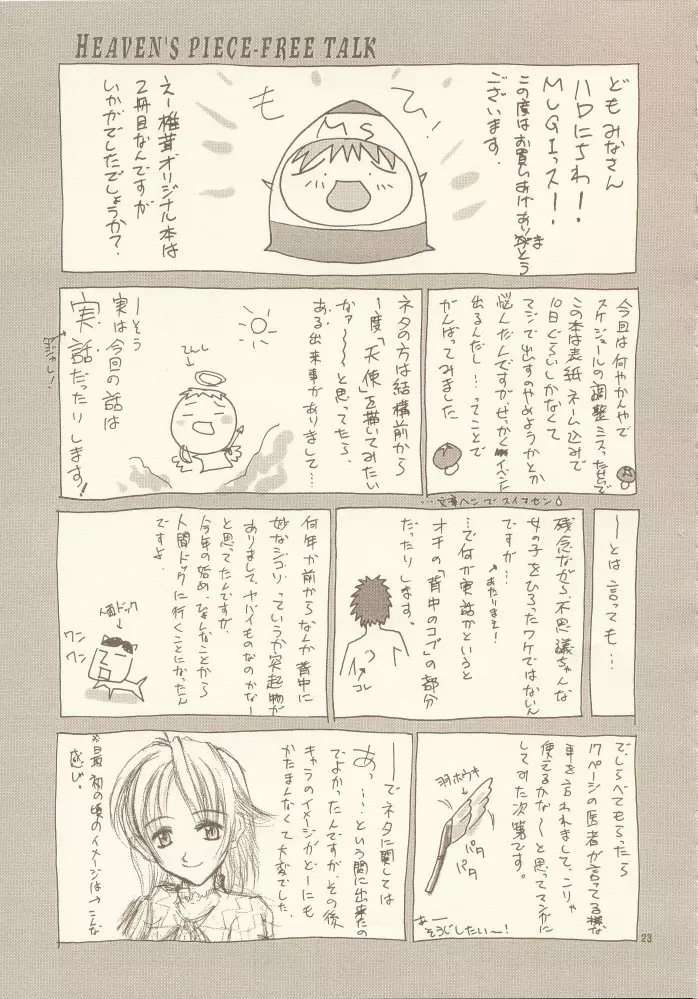 HEAVEN'S PIECE-FREE TALK
どもみなさん
ハロにちわー!
MUGIッスー!
この度はお買いあげありがとう
ございます。
ひ!
も
MS
えー椎茸オリジナル本は
2冊目なんですが
いかがでしたでしょうか?
今回は何やかんやで
スケジュールの調整ミスったせいで
この本は表紙、ネーム込みで
10日ぐらいしかなくて
マジで出すのやめようかとか
悩んだんですがせっかくイベント
出るんだし…ってことで
がんばってみました
…文章ヘンでスイマセン
ネタの方は結構前から
1度「天使」を描いてみたい
なァ〜〜と思ってたら、
ある出来事がありまして…
てんし
ーそう
実は今回の話は
実話だったりします!
ダジャレ!
ーとは言っても…
残念ながら、不思議ちゃんな
女の子をひろったワケではないん
ですが…
あたりまえ!
…で何が実話かというと
オチの「背中のコブ」の部分
だったりします。
コレ
何年か前からなんか背中に
妙なシコリっていうか突起物が
ありまして、ヤバイものなのかなー
と思ってたんですが、
今年の始め、ひょんなことから
人間ドックに行くことになったん
ですよ。
人面ドッグ
ワン
ワン
でしらべてもらったら
17ページの医者が言ってる様な
事を言われまして、こりゃ
使えるかな〜と思ってマンガに
してみた次第です。
羽ホウキ
パタ
パタ
あー
そうじしたい〜!
ーでネタに関しては
あっ…という間に出来たの
でよかったんですが、その後
キャラのイメージがどーにも
かたまんなくて大変でした。
※最初の頃のイメージは→こんな
感じ。
23